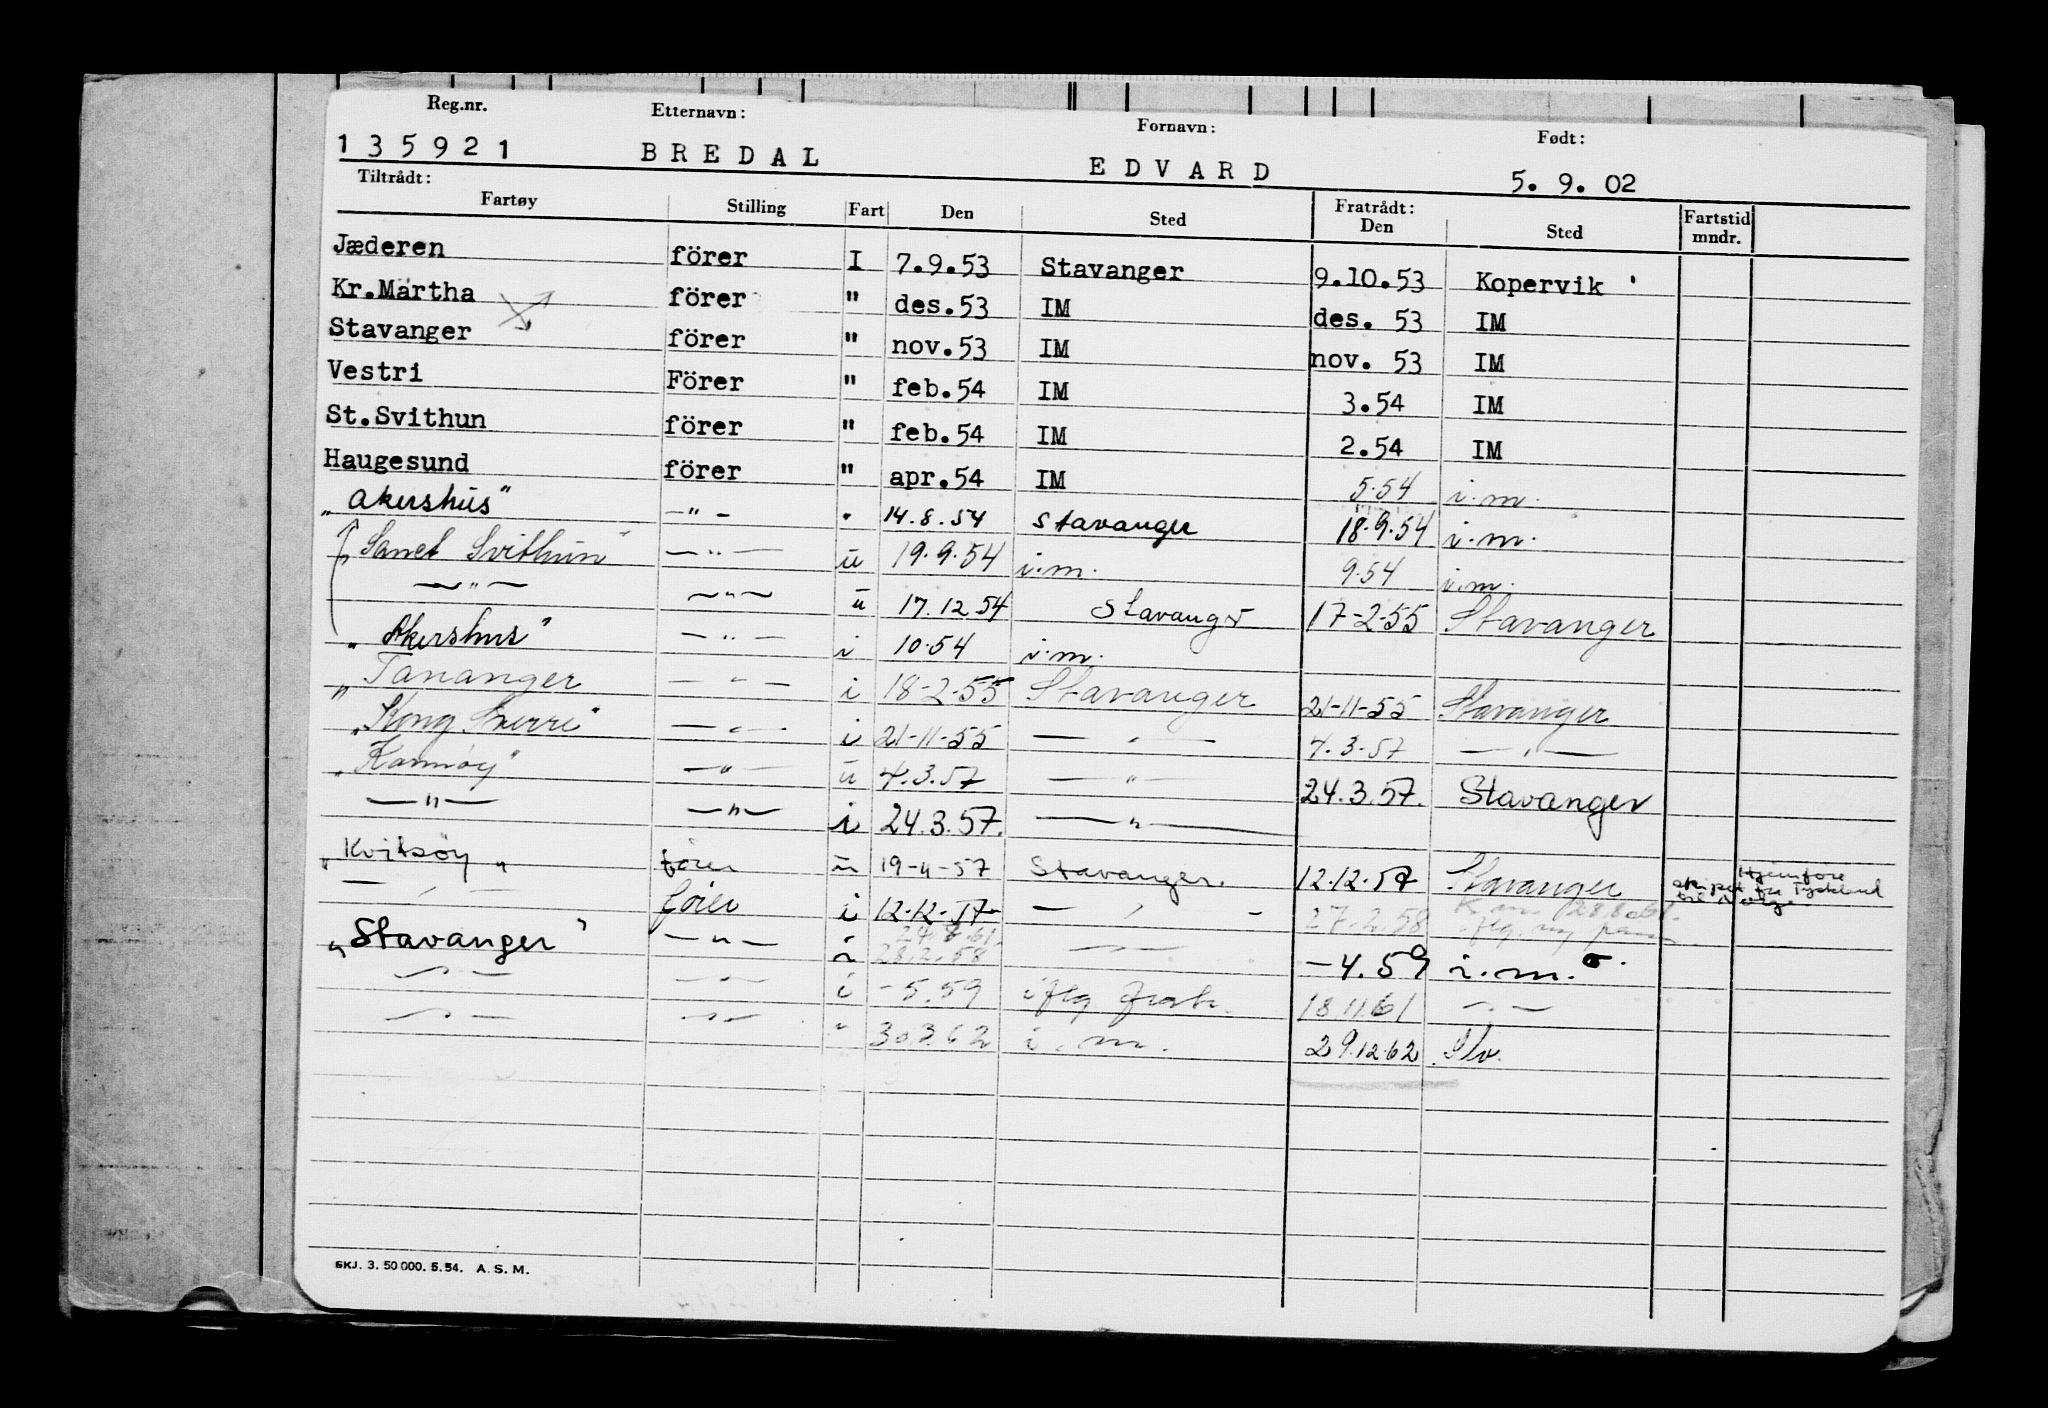 Reg.nr. Etternavn: Fornavn: Født:
135921 BREDAL EDVARD 5. 9. 02
Tiltrådt: Fratrådt:
Fartøy Stilling Fart Den Sted Den Sted Fartstid mndr.
Jæderen förer I 7.9.53 Stavanger 9.10.53 Kopervik
Kr.Martha förer " des.53 IM des. 53 IM
Stavanger förer " nov.53 IM nov. 53 IM
Vestri Förer " feb.54 IM 3.54 IM
St.Svithun förer " feb.54 IM 2.54 IM
Haugesund förer " apr.54 IM 5.54 i.m.
"Akershus" -"- " 14.8.54 Stavanger 18.9.54 i.m.
"Sanct Svithun" -"- u 19.9.54 i.m. 9.54 i.m.
-"- -"- u 17.12.54 Stavanger 17-2-55 Stavanger
"Akershus" -"- i 10.54 i.m.
"Tananger -"- i 18-2-55 Stavanger 21-11-55 Stavanger
"Kong Sverre" -"- i 21-11-55 -"- 4.3.57 -"-
"Karmøy" -"- u 4.3.57 -"- 24.3.57. Stavanger
-"- -"- i 24.3.57. -"-
"Kvitsøy" fører u 19-11-57 Stavanger. 12.12.57 Stavanger Hjemføre
skipet fra Tyskland
til Norge.
-"- fører i 12-12-57 -"- 27.2.58
"Stavanger" -"- i 28.2.58 -"- -4.59 i.m.
-"- -"- i -5.59 iflg 18.11.61 -"-
-"- -"- " 30.3.62 i.m. 29.12.62 Stv.
SKJ. 3. 50 000. 5.54. A. S. M.